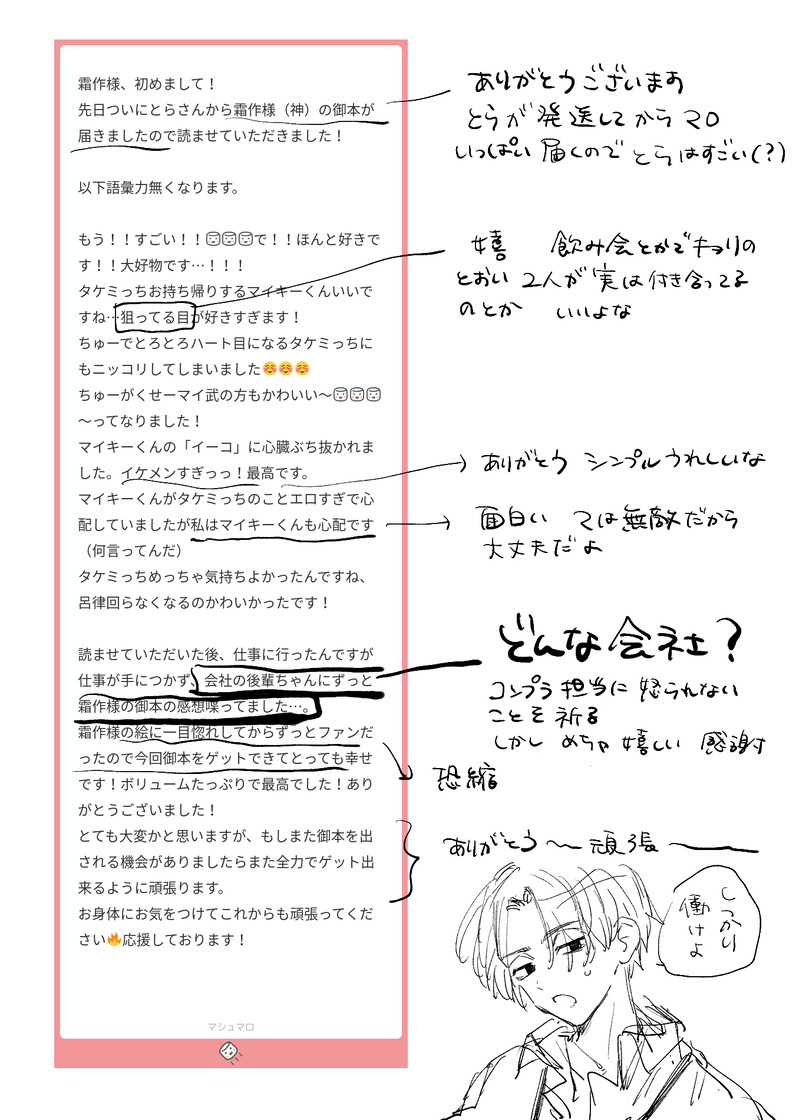 霜作様、初めまして！
先日ついにとらさんから霜作様（神）の御本が
届きましたので読ませていただきました！
以下語彙力無くなります。
もう！！すごい！！で！！ほんと好きで
す！！大好物です…！！！
タケミっちお持ち帰りするマイキーくんいいで
すね…狙ってる目が好きすぎます！
ちゅーでとろとろハート目になるタケミっちに
もニッコリしてしまいました☺️☺️☺️
ちゅーがくせーマイ武の方もかわいい〜
〜ってなりました！
マイキーくんの「イーコ」に心臓ぶち抜かれま
した。イケメンすぎっっ！最高です。
マイキーくんがタケミっちのことエロすぎで心
配していましたが私はマイキーくんも心配です
（何言ってんだ）
タケミっちめっちゃ気持ちよかったんですね、
呂律回らなくなるのかわいかったです！
読ませていただいた後、仕事に行ったんですが
仕事が手につかず、会社の後輩ちゃんにずっと
霜作様の御本の感想喋ってました…。
霜作様の絵に一目惚れしてからずっとファンだ
ったので今回御本をゲットできてとっても幸せ
です！ボリュームたっぷりで最高でした！あり
がとうございました！
とても大変かと思いますが、もしまた御本を出
される機会がありましたらまた全力でゲット出
来るように頑張ります。
お身体にお気をつけてこれからも頑張ってくだ
さい🔥応援しております！
マシュマロ
ありがとうございます
とらが発送してからマロ
いっぱい届くのでとらはすごい(？)
嬉 飲み会とかでキョリの
とおい2人が実は付き合ってる
のとか いいよな
ありがとう シンプルうれしいな
面白い マは無敵だから
大丈夫だよ
どんな会社？
コンプラ担当に怒られない
ことを祈る
しかし めちゃ嬉しい 感謝す
恐縮
ありがとう〜頑張ー
しっかり
働けよ